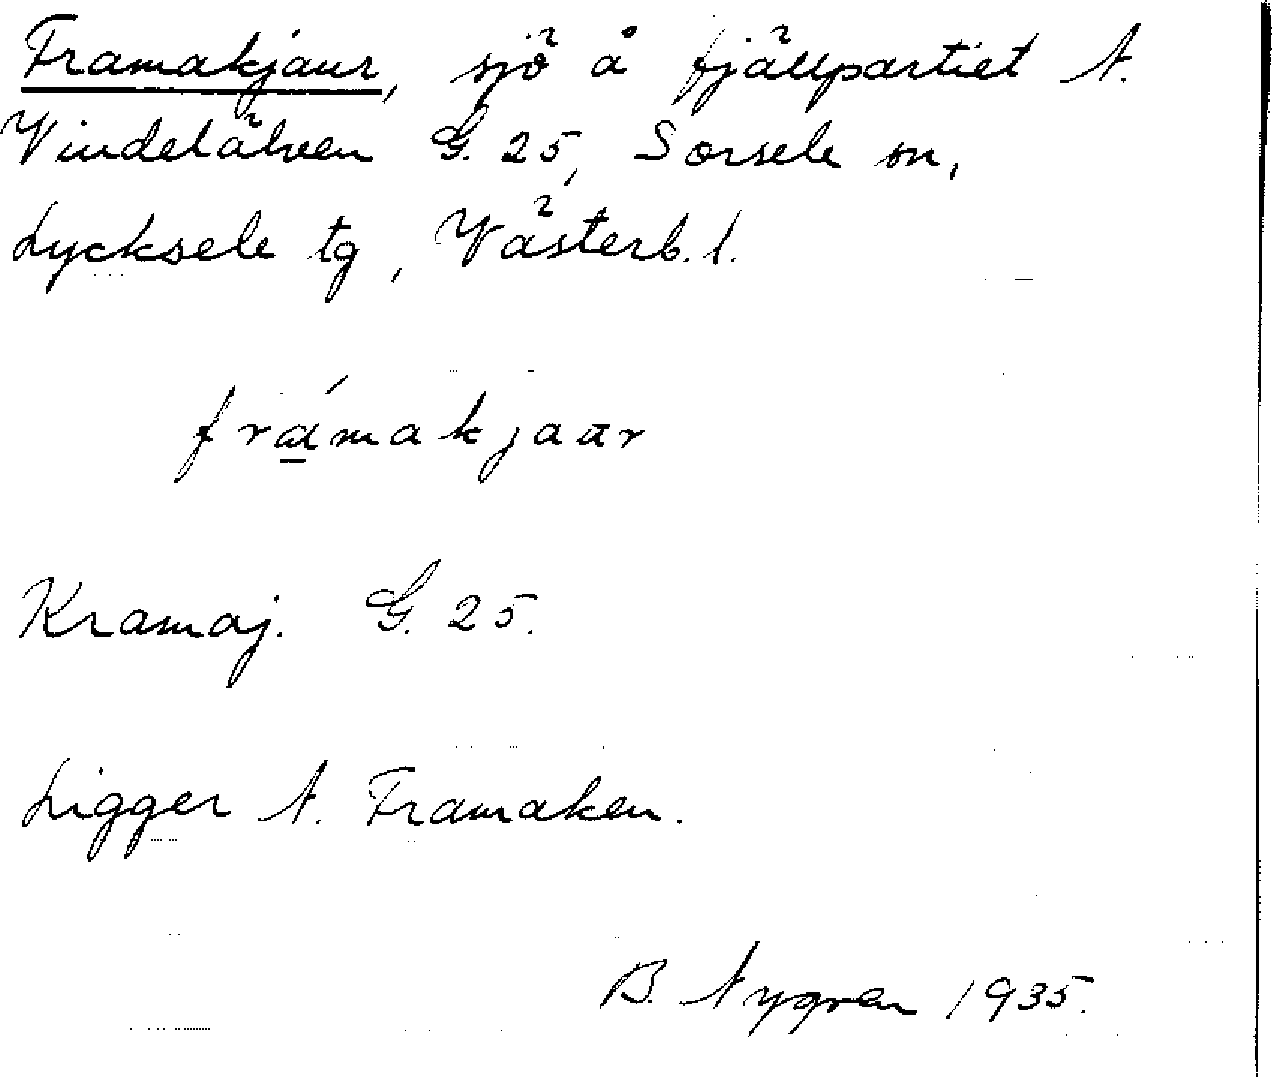 Framakjaur, sjö å fjällpartiet N.
Vindelälven G. 25, Sorsele sn,
Lycksele tg, Västerb. l.
frámakjaur
Kramaj. G. 25.
Ligger N. Framaken.
B. Nygren 1935.